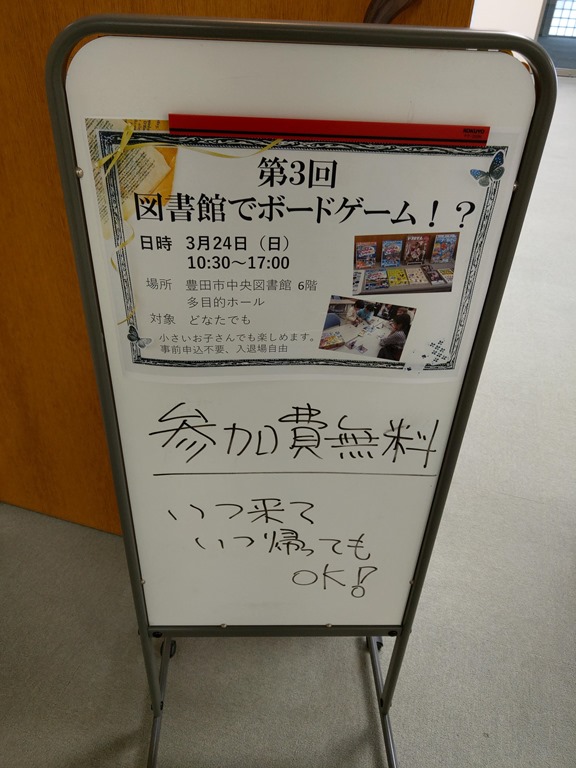 KOKUYO
第3回
図書館でボードゲーム！？
日時 3月24日（日）
10:30～17:00
場所 豊田市中央図書館 6階
多目的ホール
対象 どなたでも
小さいお子さんでも楽しめます。
事前申込不要、入退場自由
参加費無料
いつ来て
いつ帰っても
OK!